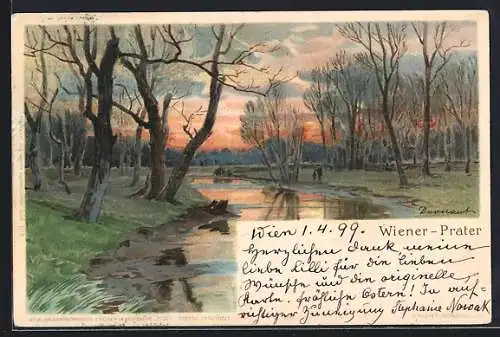 Dernaut
Wiener-Prater
Wien 1.4.99.
Herzlichen dank meine
liebe Lilli für die lieben
Wünsche und die originelle
Karte. Fröhliche Ostern! In auf-
richtiger Zuneigung Stephanie Nowak